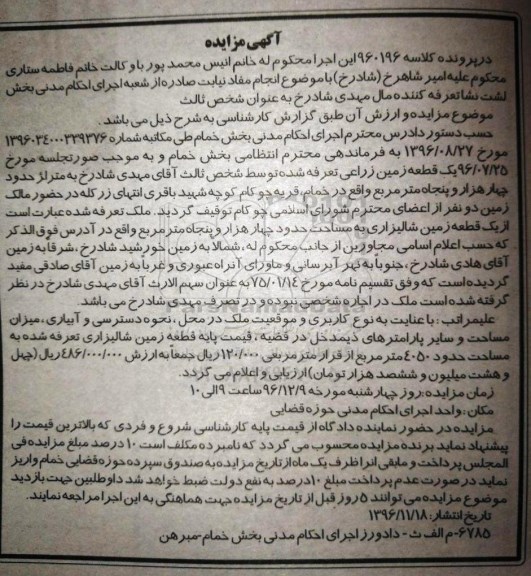 آگهی مزایده
درپرونده کلاسه ۹۶۰۱۹۶ این اجرا محکوم له خانم انیس محمد پور با و کالت خانم فاطمه ستاری
محکوم علیه امیر شاهرخ (شادرخ) با موضوع انجام مفاد نیابت صادره از شعبه اجرای احکام مدنی بخش
لشت نشا تعرفه کننده مال مهدی شادرخ به عنوان شخص ثالث
موضوع مزایده و ارزش آن طبق گزارش کارشناسی به شرح ذیل می باشد.
حسب دستور دادرس محترم اجرای احکام مدنی بخش خمام طی مکاتبه شماره ۱۳۹۶۰۳۴۰۰۰۳۳۹۳۷۶
مورخ ۱۳۹۶/۰۸/۲۷ به فرماندهی محترم انتظامی بخش خمام و به موجب صورتجلسه مورخ
۹۶/۰۷/۲۵ یک قطعه زمین زراعی تعرفه شده توسط شخص ثالث آقای مهدی شادرخ به متراژ حدود
چهار هزار و پنجاه متر مربع واقع در خمام، قریه چو کام کوچه شهید باقری انتهای زر کله در حضور مالک
زمین دو نفر از اعضای محترم شورای اسلامی چو کام توقیف گردید. ملک تعرفه شده عبارت است
از یک قطعه زمین شالیزاری به مساحت حدود چهار هزار و پنجاه متر مربع واقع در آدرس فوق الذکر
که حسب اعلام اسامی مجاورین از جانب محکوم له، شمالاً به زمین خورشید شادرخ، شرقاً به زمین
آقای هادی شادرخ، جنوباً به نهر آبرسانی و ماورای آن راه عبوری و غرباً به زمین آقای صادقی مفید
گردیده است که وفق تقسیم نامه مورخ ۷۵/۰۱/۱۴ به عنوان سهم الارث آقای مهدی شادرخ در نظر
گرفته شده است ملک در اجاره شخصی نبوده و در تصرف مهدی شادرخ می باشد.
علیهذا مراتب: با عنایت به نوع کاربری و موقعیت ملک در محل، نحوه دسترسی و آبیاری، میزان
مساحت و سایر پارامترهای ذیمدخل در قضیه، قیمت پایه قطعه زمین شالیزاری تعرفه شده به
مساحت حدود ۴۰۵۰ متر مربع از قرار متر مربعی ۱۲۰/۰۰۰ ریال جمعاً به ارزش ۴۸۶/۰۰۰/۰۰۰ ریال (چهل
و هشت میلیون و ششصد هزار تومان) ارزیابی و اعلام می گردد.
زمان مزایده: روز چهارشنبه مورخه ۹۶/۱۲/۹ ساعت ۹ الی ۱۰
مکان: واحد اجرای احکام مدنی حوزه قضایی
مزایده در حضور نماینده دادگاه از قیمت پایه کارشناسی شروع و فردی که بالاترین قیمت را
پیشنهاد نماید برنده مزایده محسوب می گردد که نامبرده مکلف است ۱۰ درصد مبلغ مزایده فی
المجلس پرداخت و مابقی انرا ظرف یک ماه از تاریخ مزایده به صندوق سپرده حوزه قضایی خمام واریز
نماید در صورت عدم پرداخت مبلغ ۱۰ درصد به نفع دولت ضبط خواهد شد داوطلبین جهت بازدید
موضوع مزایده می توانند ۵ روز قبل از تاریخ مزایده جهت هماهنگی به این اجرا مراجعه نمایند.
تاریخ انتشار: ۱۳۹۶/۱۱/۱۸
۶۷۸۵-م الف ث - دادورز اجرای احکام مدنی بخش خمام-مبرهن